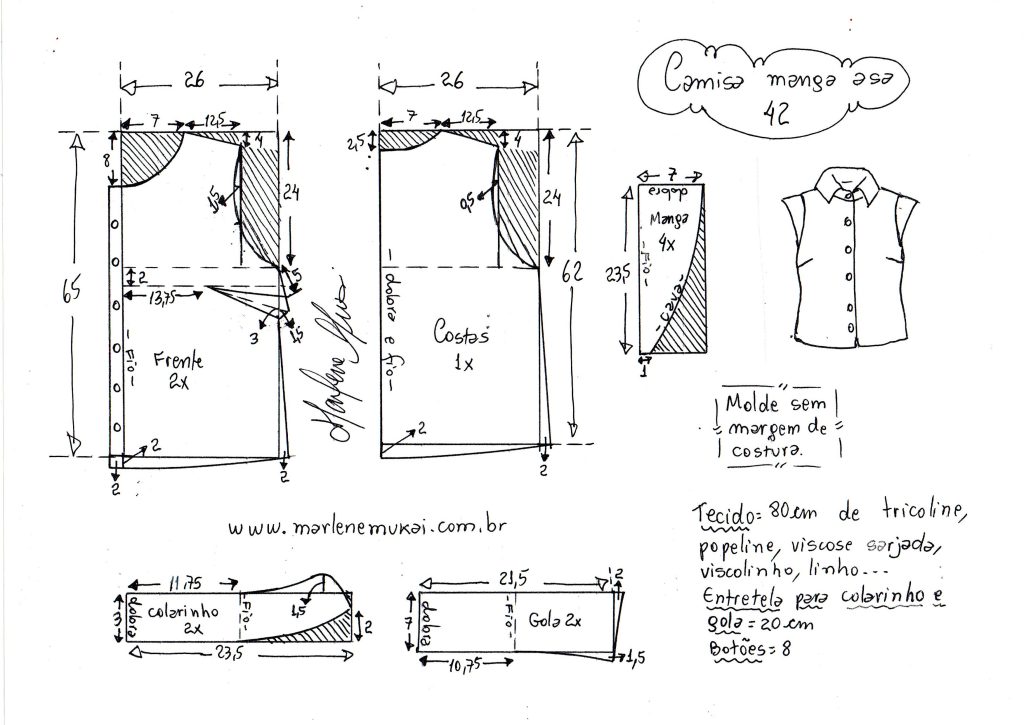 Camisa manga asa
42
26
7
12,5
4
8
1,5
24
65
2
13,75
5
3
1,5
Fio
Frente
2x
2
2
2
Marlene Mukai
26
2,5
12,5
4
0,5
24
62
dobra e fio
Costas
1x
2
2
7
dobra
Manga
4x
Fio
23,5
cava
1
Molde sem
margem de
costura.
www.marlenemukai.com.br
Tecido= 80cm de tricoline,
popeline, viscose sarjada,
viscolinho, linho...
Entretela para colarinho e
gola = 20cm
Botões= 8
11,75
3
dobra
colarinho
2x
Fio
1,5
2
23,5
21,5
2
7
dobra
Fio
Gola 2x
10,75
1,5